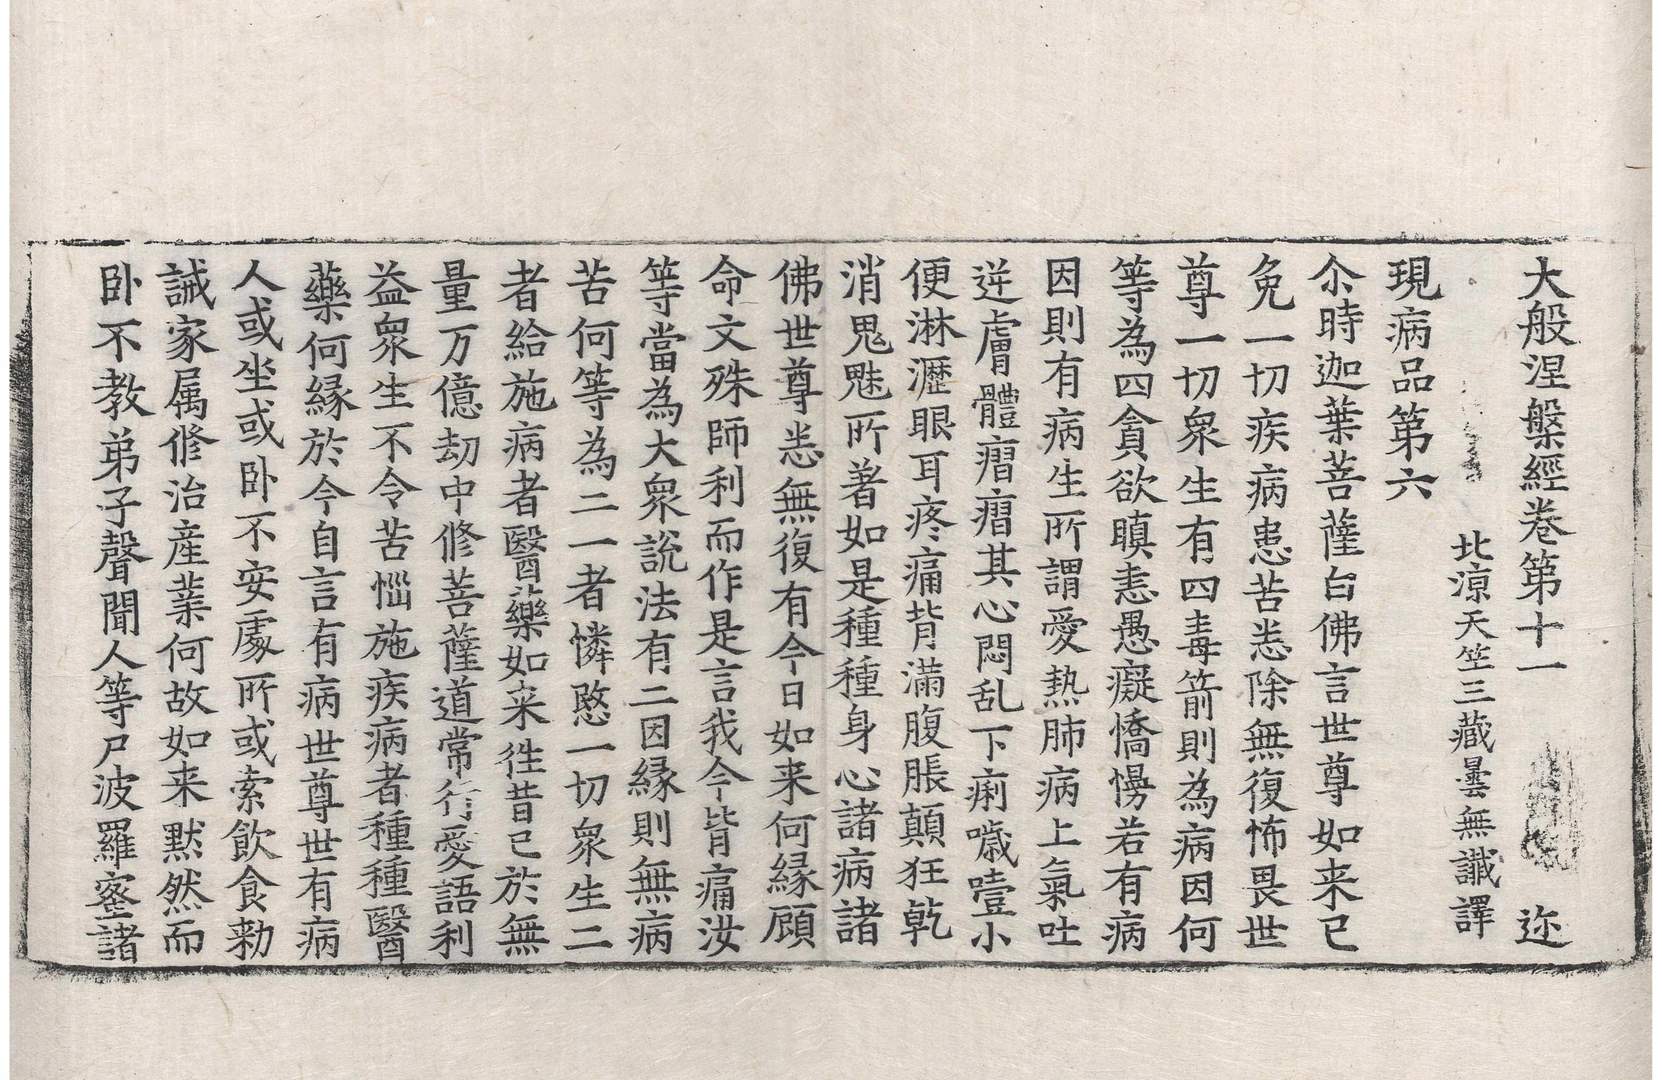 大般涅槃經卷第十一 迩
北涼天竺三藏曇無讖譯
現病品第六
尒時迦葉菩薩白佛言世尊如来已
免一切疾病患苦悉除無復怖畏世
尊一切衆生有四毒箭則為病因何
等為四貪欲瞋恚愚癡憍慢若有病
因則有病生所謂愛熱肺病上氣吐
逆膚體𤺋𤺋其心悶乱下痢噦噎小
便淋瀝眼耳疼痛背滿腹脹顛狂乾
消鬼魅所著如是種種身心諸病諸
佛世尊悉無復有今日如来何緣顧
命文殊師利而作是言我今背痛汝
等當為大衆說法有二因緣則無病
苦何等為二一者憐愍一切衆生二
者給施病者醫藥如来徃昔已於無
量万億劫中修菩薩道常行愛語利
益衆生不令苦惱施疾病者種種醫
藥何緣於今自言有病世尊世有病
人或坐或卧不安處所或索飲食勑
誡家属修治産業何故如来默然而
卧不教弟子聲聞人等尸波羅蜜諸